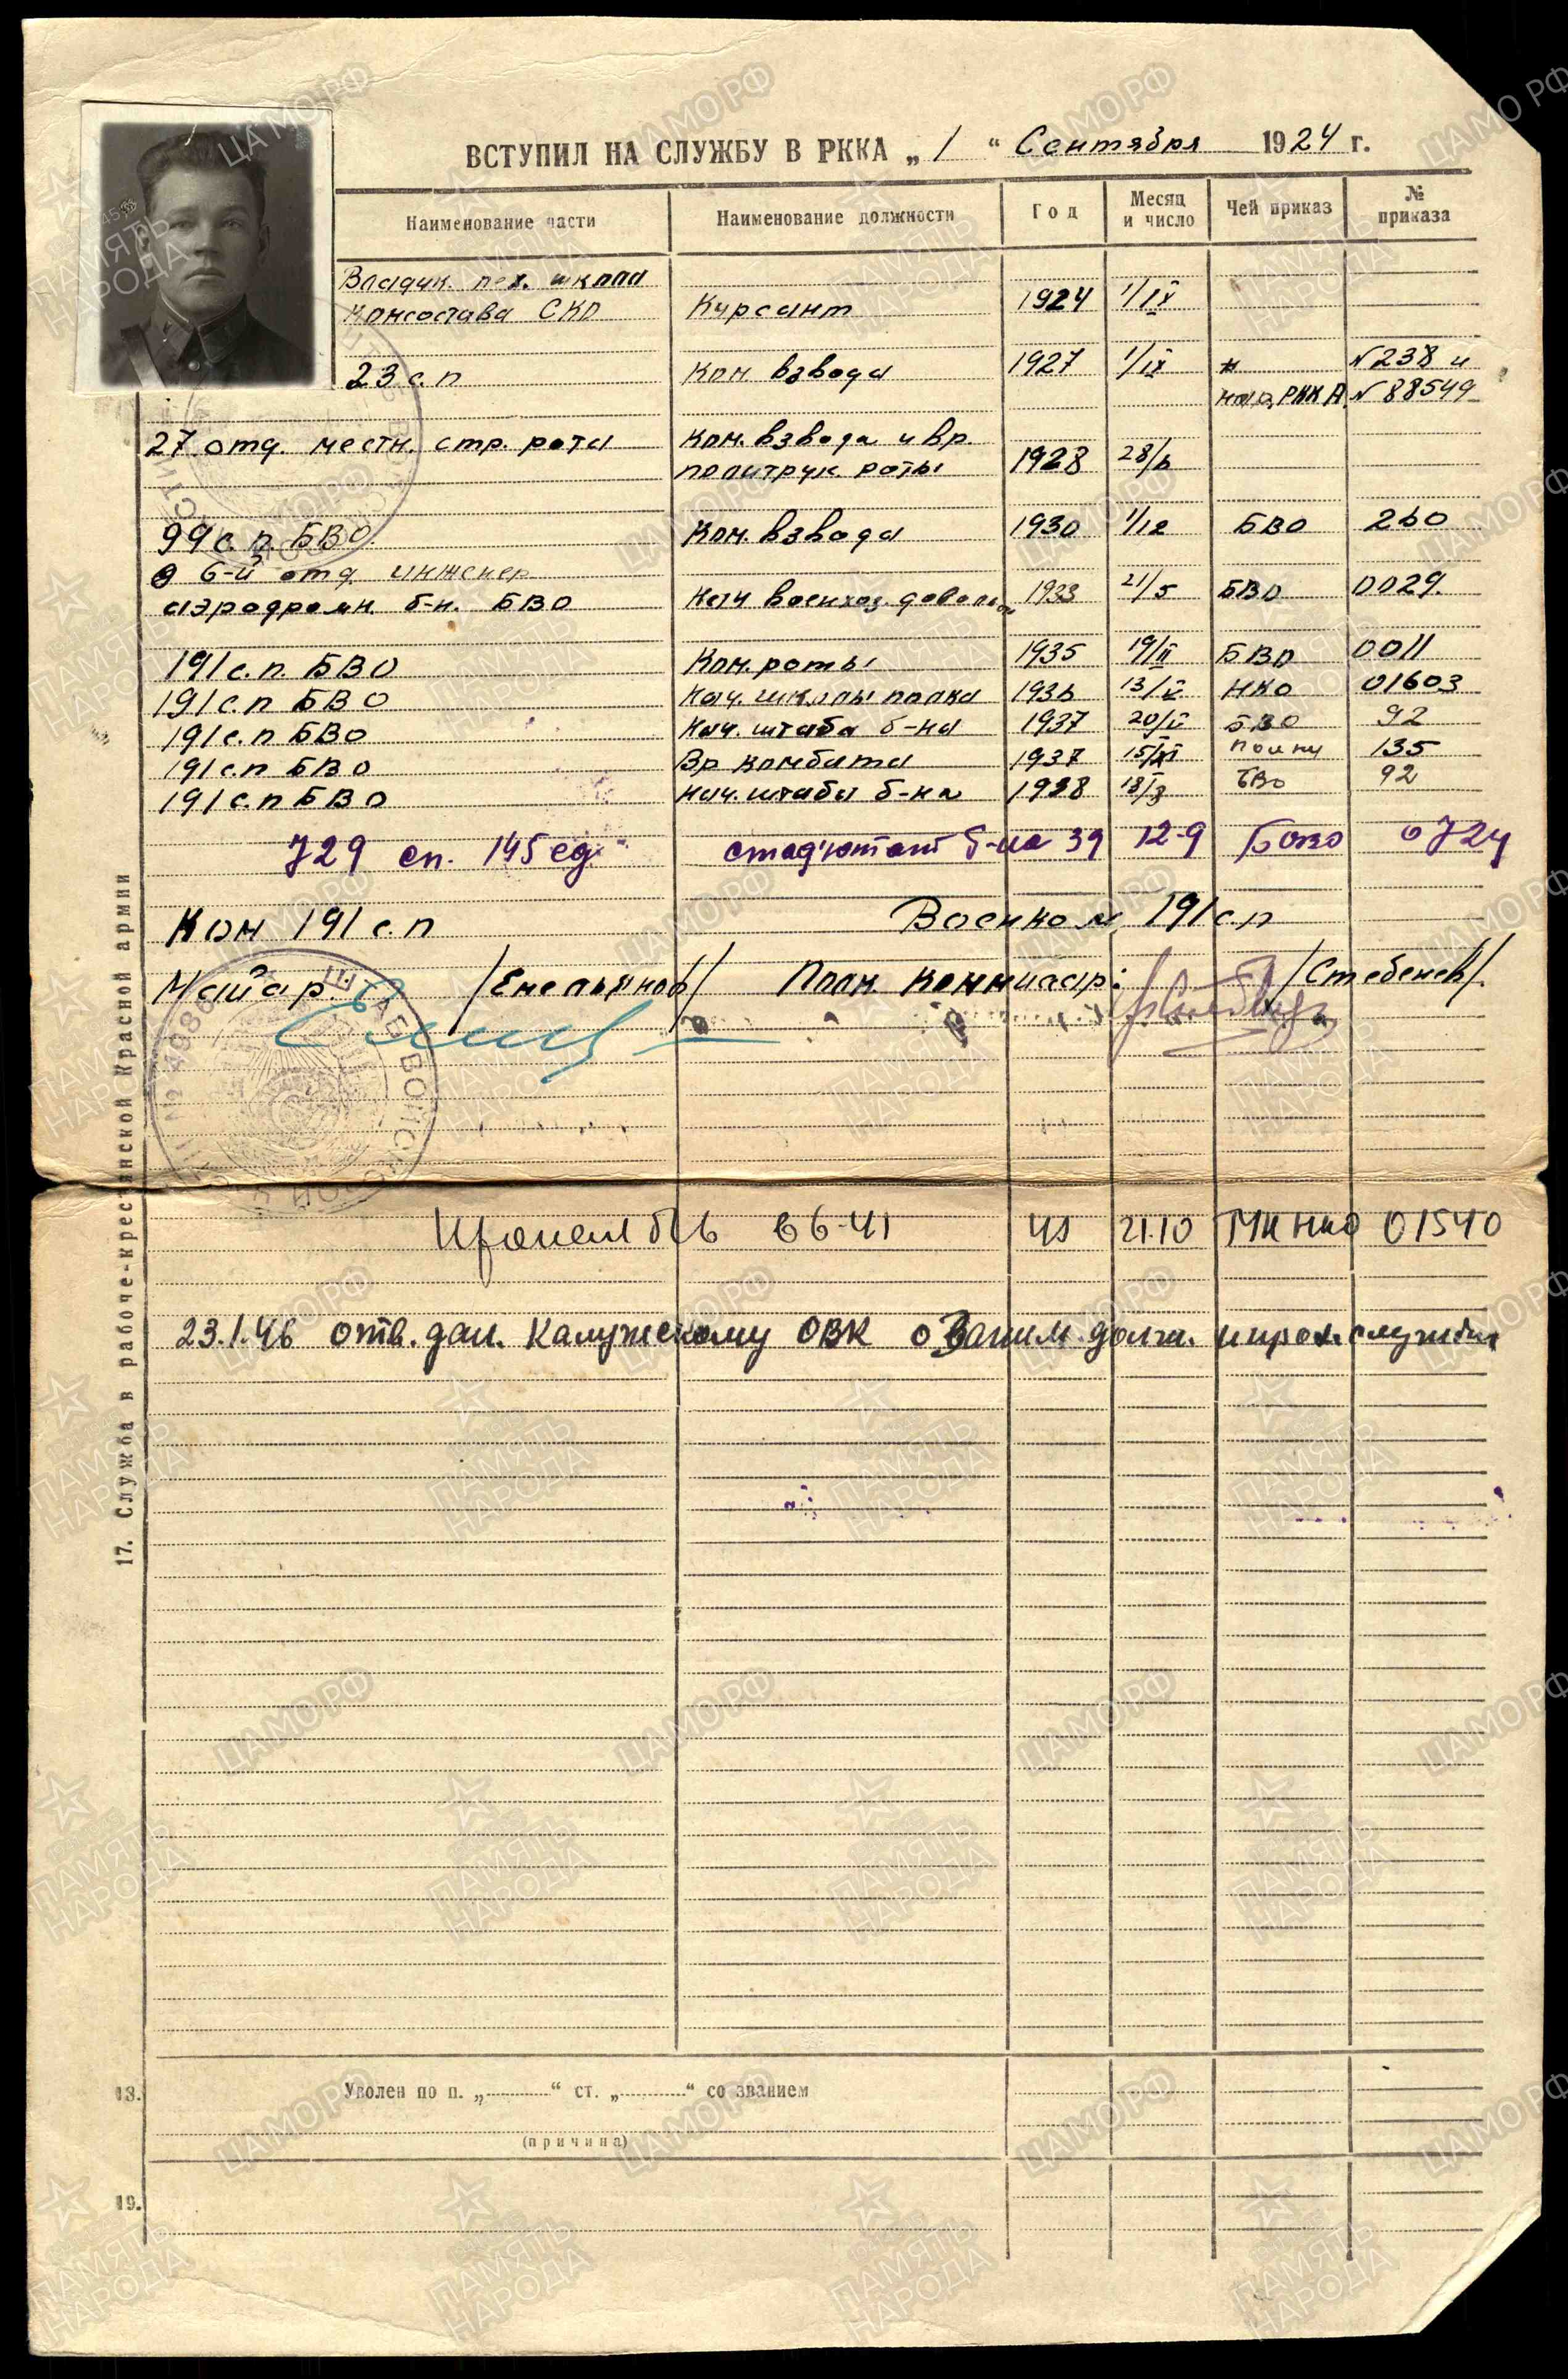 ВСТУПИЛ НА СЛУЖБУ В РККА „1“ Сентября 1924 г.
Наименование части Наименование должности Год Месяц и число Чей приказ № приказа
Владик. пех. школа
комсостава СКО Курсант 1924 1/IX
23 с.п Ком. взвода 1927 1/IX № 238 и
РККА № 88549
27 отд. местн. стр. рота Ком. взвода и вр.
политрук роты 1928 28/6
99 с.п. БВО Ком. взвода 1930 1/12 БВО 260
6-й отд. инженер
аэродромн. б-н. БВО Нач военхоз. довольс 1933 21/5 БВО 0029.
191 с.п. БВО Ком. роты 1935 19/II БВО 0011
191 с.п БВО Нач. школы полка 1936 13/ НКО 01603
191 с.п БВО Нач. штаба б-на 1937 20/ БВО 92
191 с.п БВО Вр комбата 1937 15/XI полку 135
191 с.п БВО нач. штаба б-на 1938 БВО 92
729 сп. 145 сд ст ад'ютант б-на 39 12-9 БОВО 0724
Ком 191 с.п Военком 191 с.п
Майор. /Емельянов/ Полк. комиссар: /Стебенев/.
Пропал б/в в 6-41 41 21.10 НКО 01540
23.1.46 отв. дан. Калужскому ОВК о Заним. долж. и прох. службы
17. Служба в рабоче-крестьянской Красной армии
18. Уволен по п. „ “ ст. „ “ со званием
(причина)
19.
ЦАМО РФ
ПАМЯТЬ НАРОДА